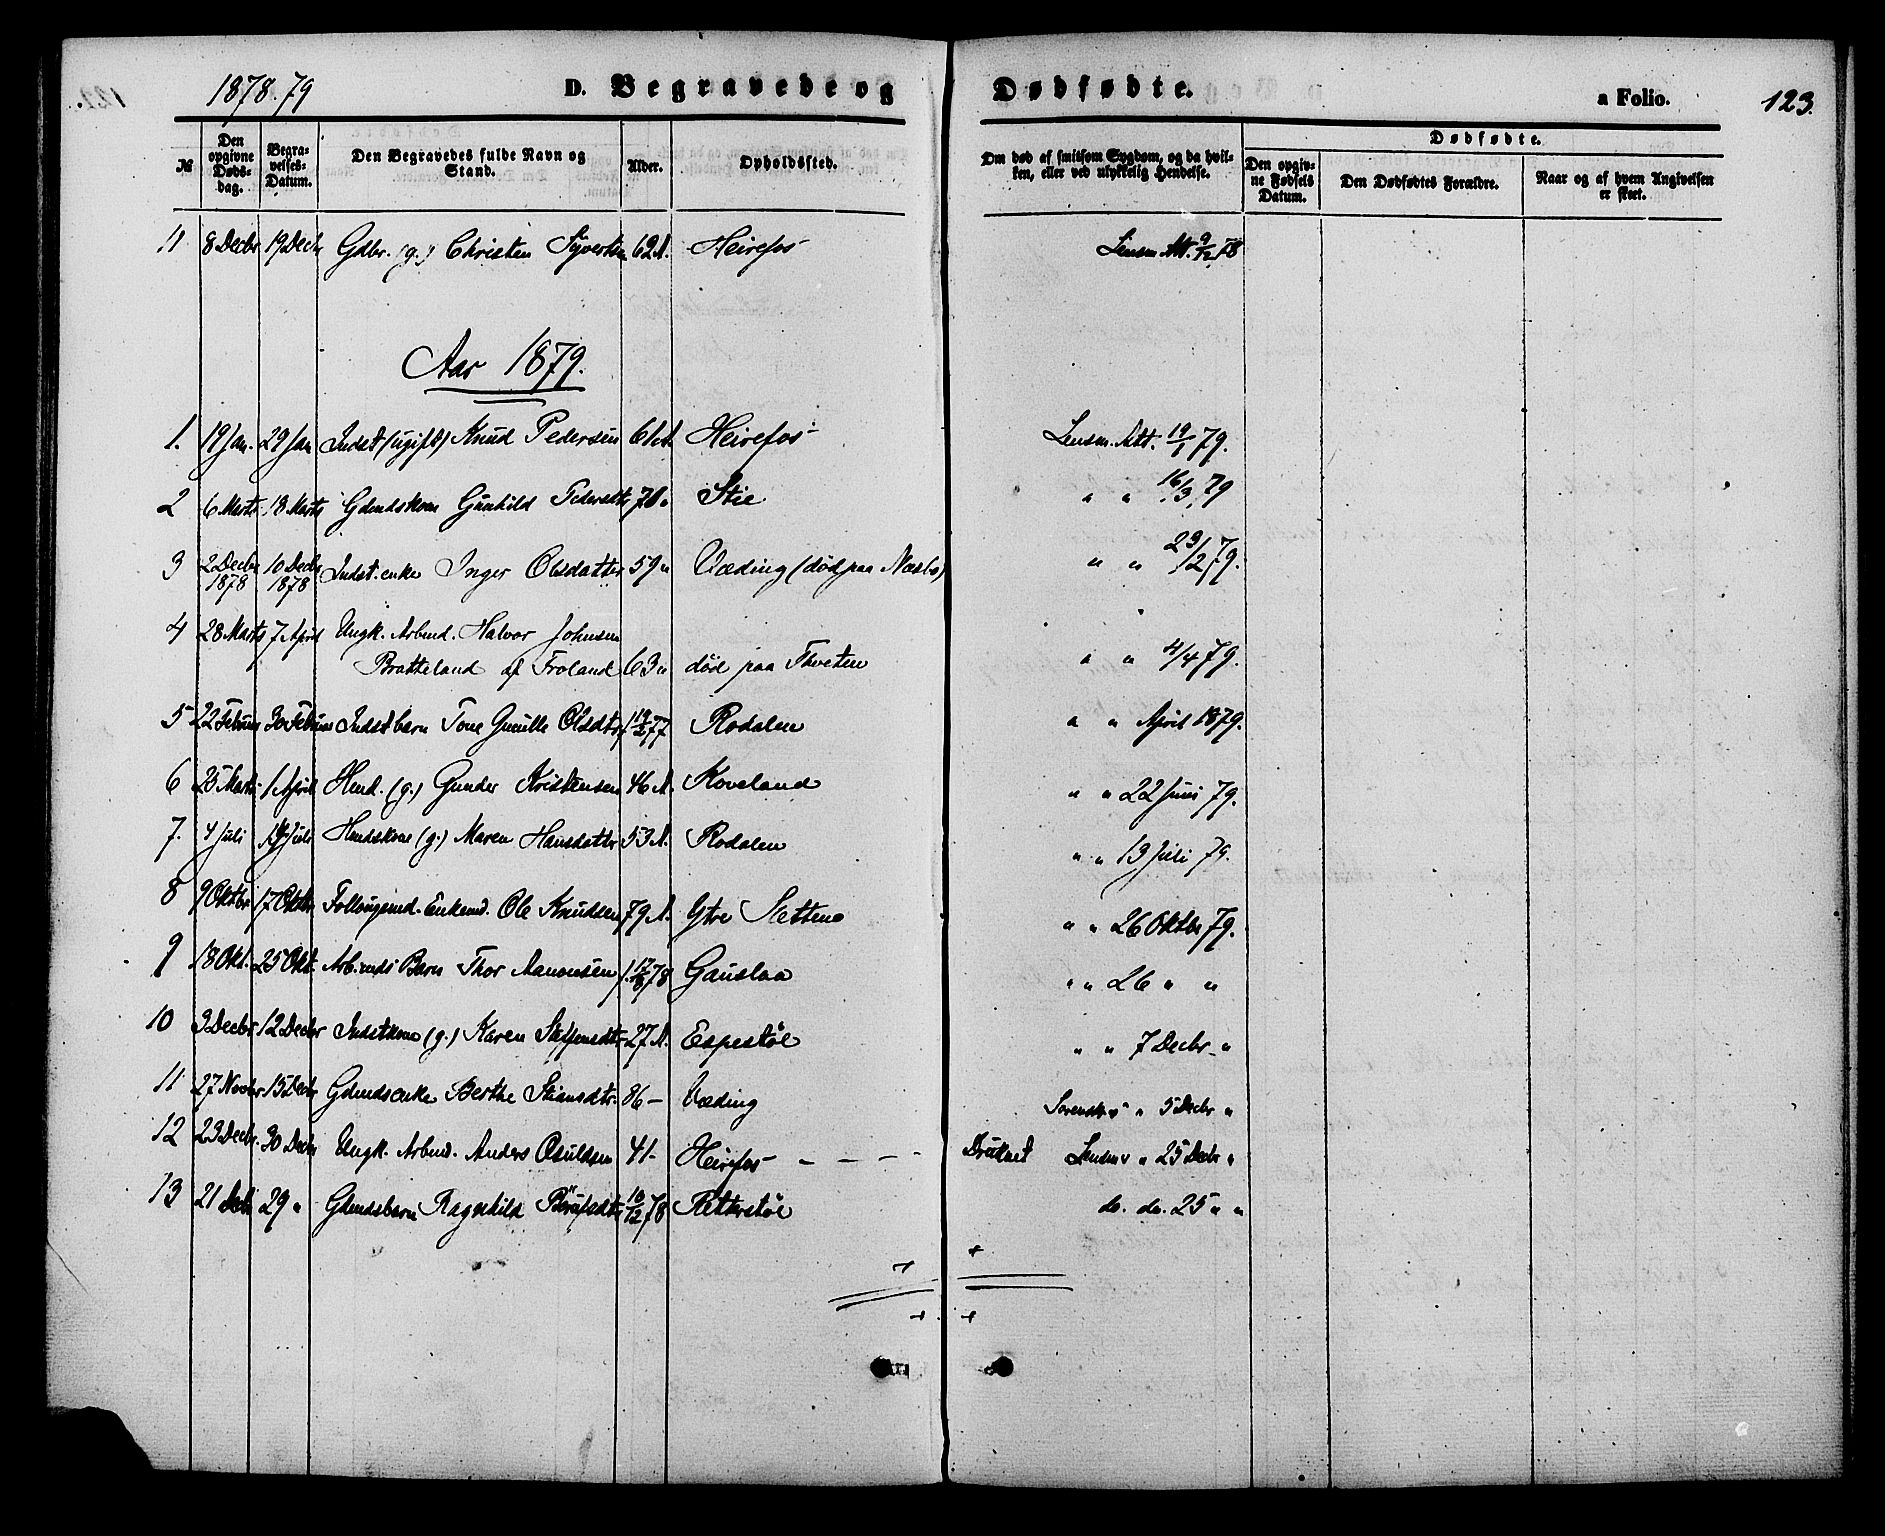 1878.79
D. Begravede og Dødfødte.
a Folio.
123.
№
Den opgivne Døds-dag.
Begra-velses-Datum.
Den Begravedes fulde Navn og Stand.
Alder.
Opholdssted.
Om død af smitsom Sygdom, og da hvil-ken, eller ved ulykkelig Hendelse.
Dødfødte.
Den opgiv-ne Fødsels Datum.
Den Dødfødtes Forældre.
Naar og af hvem Angivelsen er skeet.
11 8 Decbr 19 Decbr Gdbr. (g.) Christen Syvertsen 62 A. Heirefos Lensm. Att. 9/12 78
Aar 1879.
1. 19 Jan. 29 Jan Indst (ugift) Knud Pedersen 61 A. Heirefos Lensm. Att. 19/1 79.
2 6 Marts 18 Marts Gdmdskone Gunhild Pedersdtr 70 " Stie " " 16/3 79
3 2 Decbr 1878 10 Decbr 1878 Indst. enke Inger Olsdatter 59 " Væding (død paa Næsb) " " 23/2 79.
4 28 Marts 7 April Ungk. Arbmd. Halvor Johnsen
Bratteland af Froland 63 " død paa Thveten " " 4/4 79.
5 22 Februar 30 Februar Indstbarn Tone Gunille Olsdtr f. 19/2 77 Rodalen " " April 1879.
6 25 Marts 1 April Hmd. (g.) Gunder Kristensen 46 A. Koveland " " 22 Juni 79.
7. 4 Juli 14 Juli Hmdskone (g.) Maren Hansdatter 53 A. Rodalen " " 13 Juli 79.
8 9 Oktbr 17 Oktbr Follougsmd. Enkemd. Ole Knudsen 79 A. Ytre Slettene " " 26 Oktbr 79.
9 18 Okt. 25 Okt. Arb.mds Barn Thor Aanonsen f. 17/8 78 Gauslaa " " 26 " "
10 3 Decbr 12 Decbr Indstkone (g.) Karen Steffensdtr 27 A. Espestøl " " 7 Decbr "
11 27 Novbr 15 Decbr Gdmdsenke Berthe Stiansdtr. 86 – Væding " 5 Decbr "
12 23 Decbr. 30 Decbr Ungk. Arbmd. Anders Osuldsen 41 – Heirefos – – – – Druknet Lensm " " 25 Decbr "
13 21 Decbr 29 " Gdmdsbarn Ragnhild 10/12 78 Retterstøl do. do. 25 " "